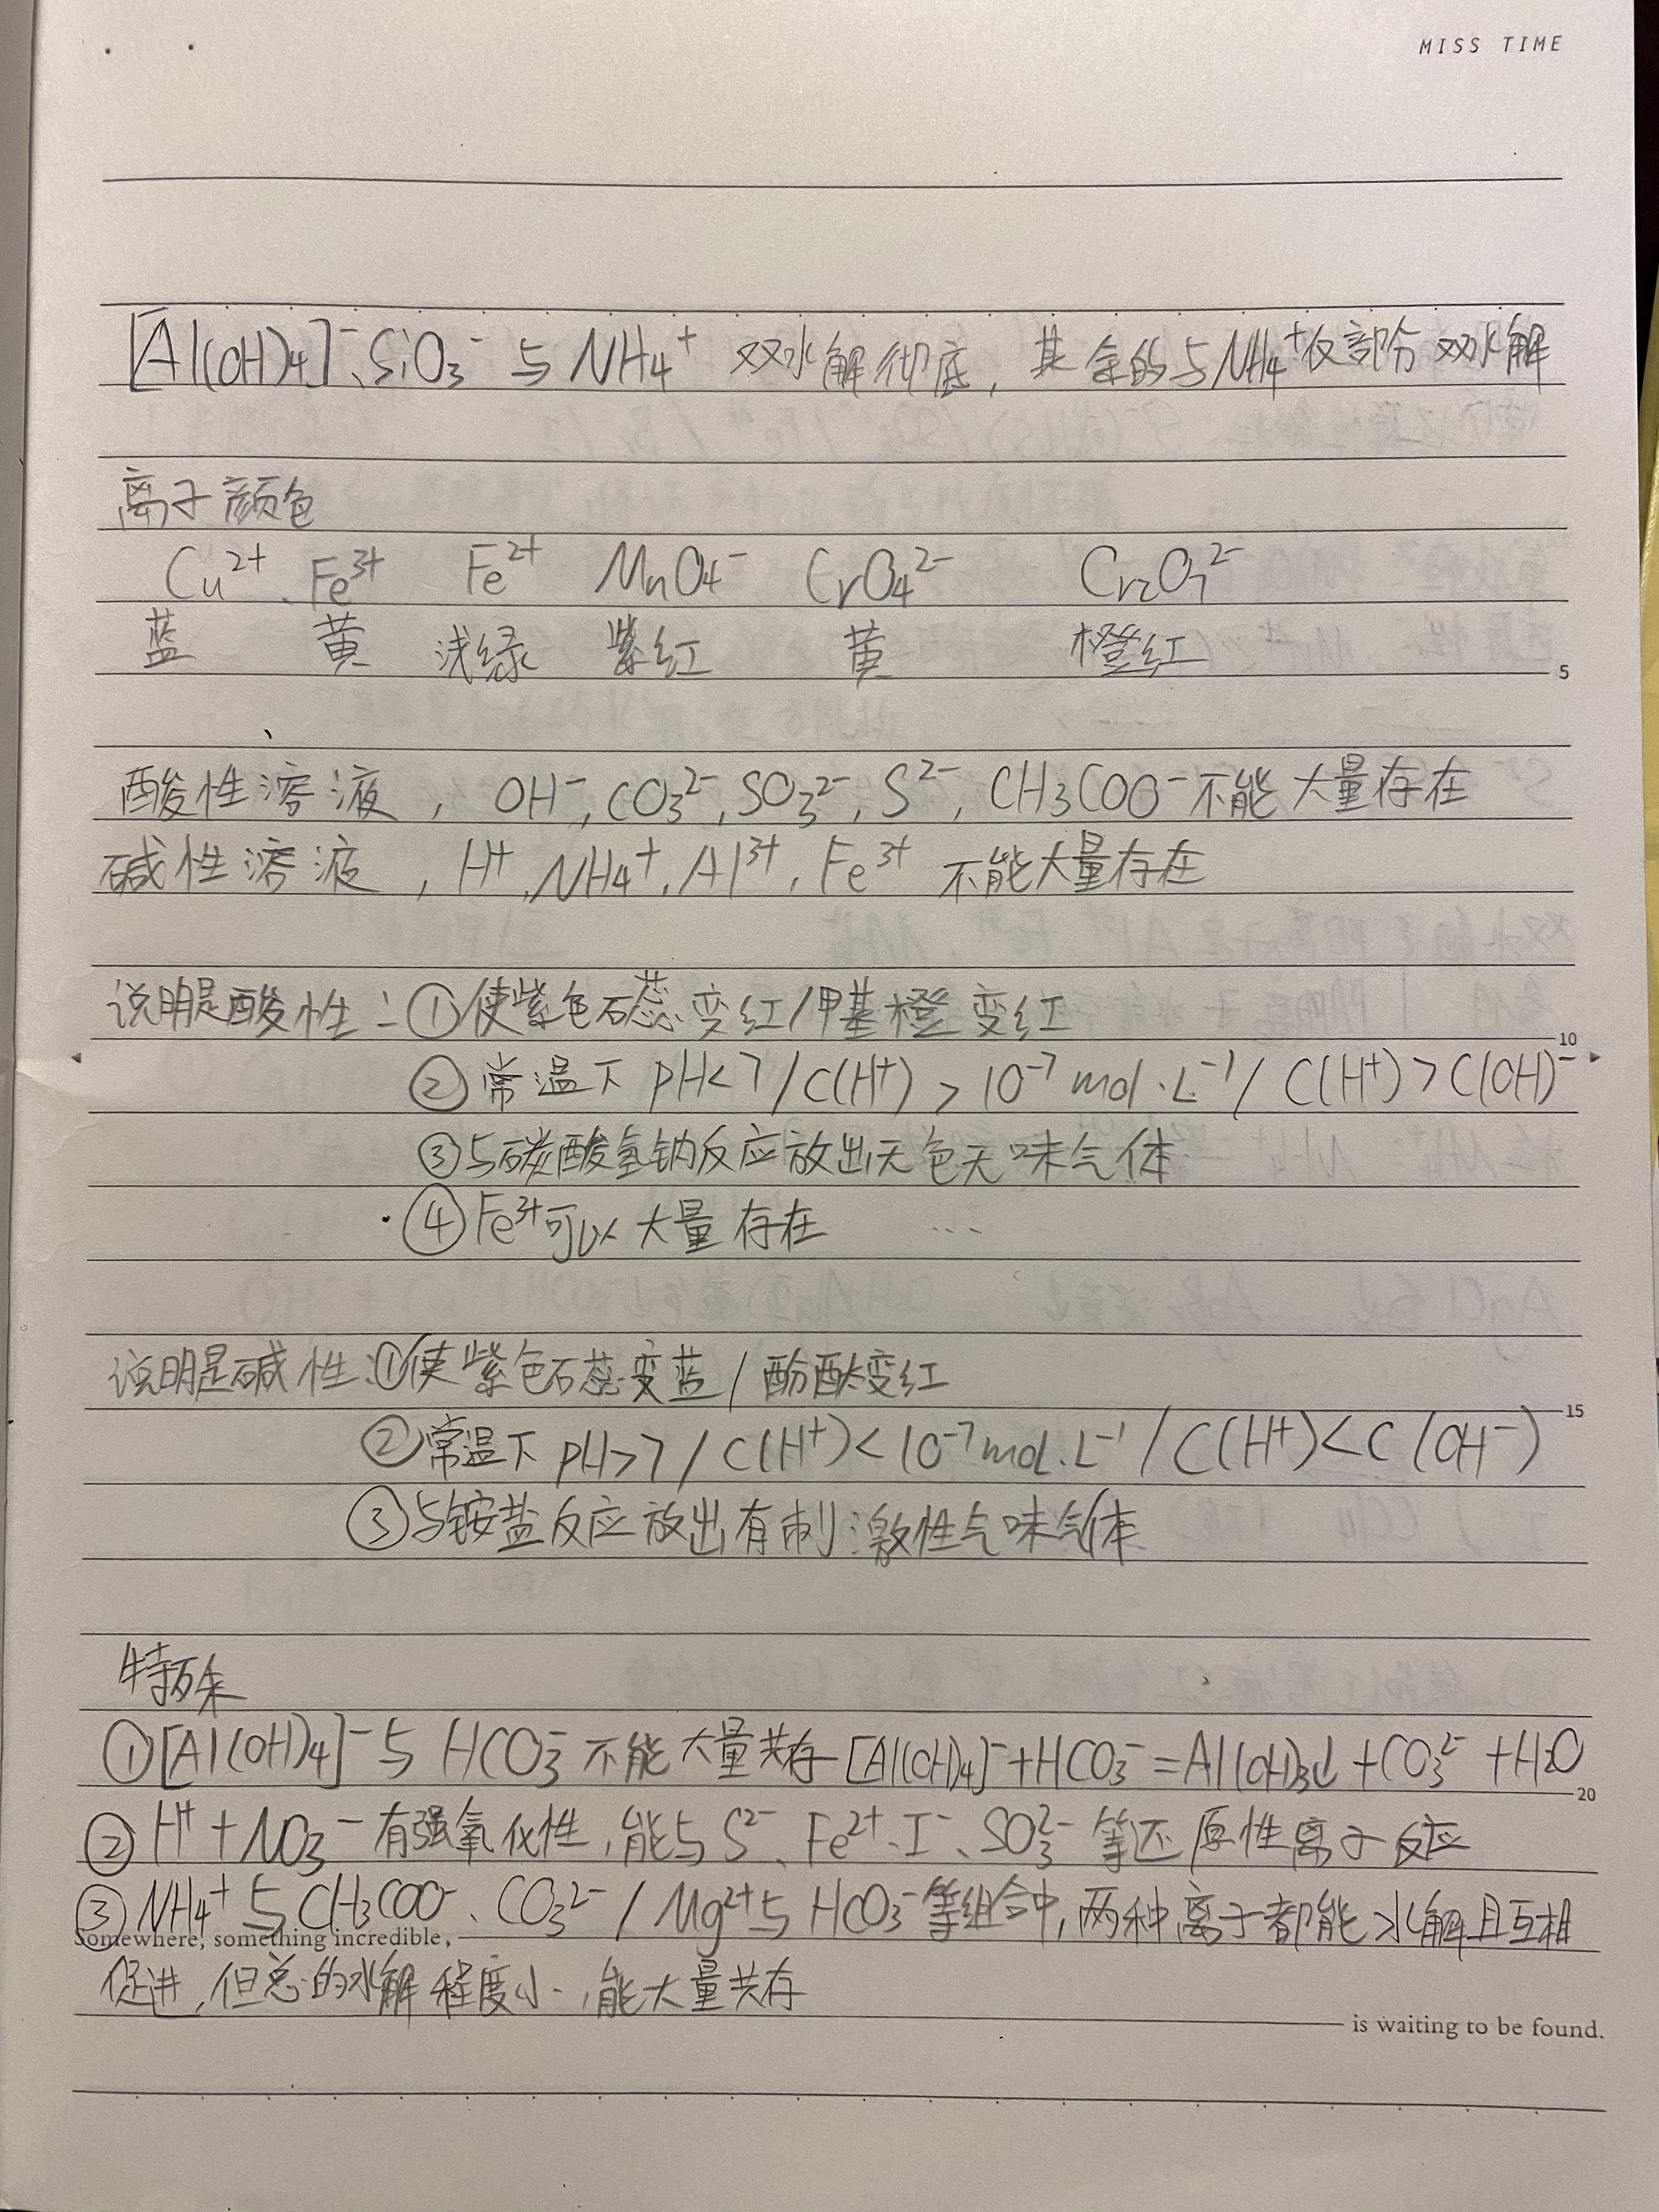 MISS TIME
[Al(OH)4]⁻、SiO3⁻ 与 NH4⁺ 双水解彻底, 其余的与NH4⁺仅部分双水解
离子颜色
Cu²⁺、Fe³⁺ Fe²⁺ MnO4⁻ CrO4²⁻ Cr2O7²⁻
蓝 黄 浅绿 紫红 黄 橙红
5
酸性溶液, OH⁻, CO3²⁻, SO3²⁻, S²⁻, CH3COO⁻不能大量存在
碱性溶液, H⁺, NH4⁺, Al³⁺, Fe³⁺ 不能大量存在
说明是酸性: ①使紫色石蕊变红/甲基橙变红
10
②常温下 pH<7/C(H⁺) > 10⁻⁷ mol·L⁻¹/C(H⁺)>C(OH)⁻
③与碳酸氢钠反应放出无色无味气体
④Fe³⁺可以大量存在
说明是碱性:①使紫色石蕊变蓝/酚酞变红
15
②常温下 pH>7/C(H⁺)<10⁻⁷mol·L⁻¹/C(H⁺)<C(OH⁻)
③与铵盐反应放出有刺激性气味气体
特殊
①[Al(OH)4]⁻与 HCO3⁻不能大量共存 [Al(OH)4]⁻+HCO3⁻=Al(OH)3↓+CO3²⁻+H2O
20
②H⁺+NO3⁻有强氧化性,能与S²⁻、Fe²⁺、I⁻、SO3²⁻等还原性离子反应
③NH4⁺与CH3COO⁻、CO3²⁻/Mg²⁺与HCO3⁻等组合中,两种离子都能水解且互相
Somewhere, something incredible,
促进,但总的水解程度小、能大量共存
is waiting to be found.